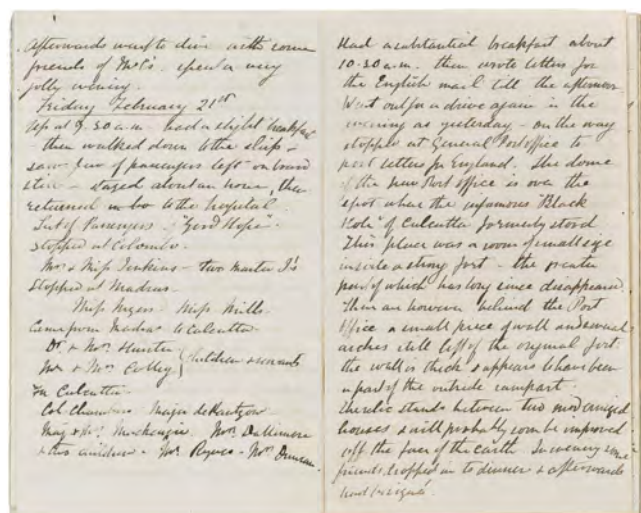 Afterwards went to dine with some
friends of McC's. spent a very
jolly evening.
Friday February 21st
Up at 9.30 a.m. had a slight breakfast
- then walked down to the ship -
saw few of passengers left on board
stern - stayed about an hour, then
returned to the hospital.
List of Passengers. "Good Hope".
Stopped at Colombo.
Mr & Miss Jenkins - two Master J's
Stopped at Madras.
Miss Myers. Miss Mills.
Came from Madras to Calcutta.
Dr. & Mrs. Hunter
Mr & Mrs Colley } Children & servants
For Calcutta
Col Chambers. Major
Maj & Mrs Mackenzie. Mrs Dallimore
& two children - Mrs Reyves - Mrs Duncan.
Had a substantial breakfast about
10.30 a.m. then wrote letters for
the English mail till the afternoon
Went out for a drive again in the
evening as yesterday - on the way
stopped at General Post office to
post letters for England. The dome
of the New Post office is over the
spot where the infamous "Black
Hole" of Calcutta formerly stood
This place was a room of small size
inside a strong fort - the greater
part of which has long since disappeared.
There are however behind the Post
Office a small piece of wall and several
arches still left of the original fort.
the wall is thick & appears to have been
a part of the outside rampart.
The relic stands between two
houses & will probably soon be improved
off the face of the earth. In evening some
friends dropped in to dinner & afterwards
had